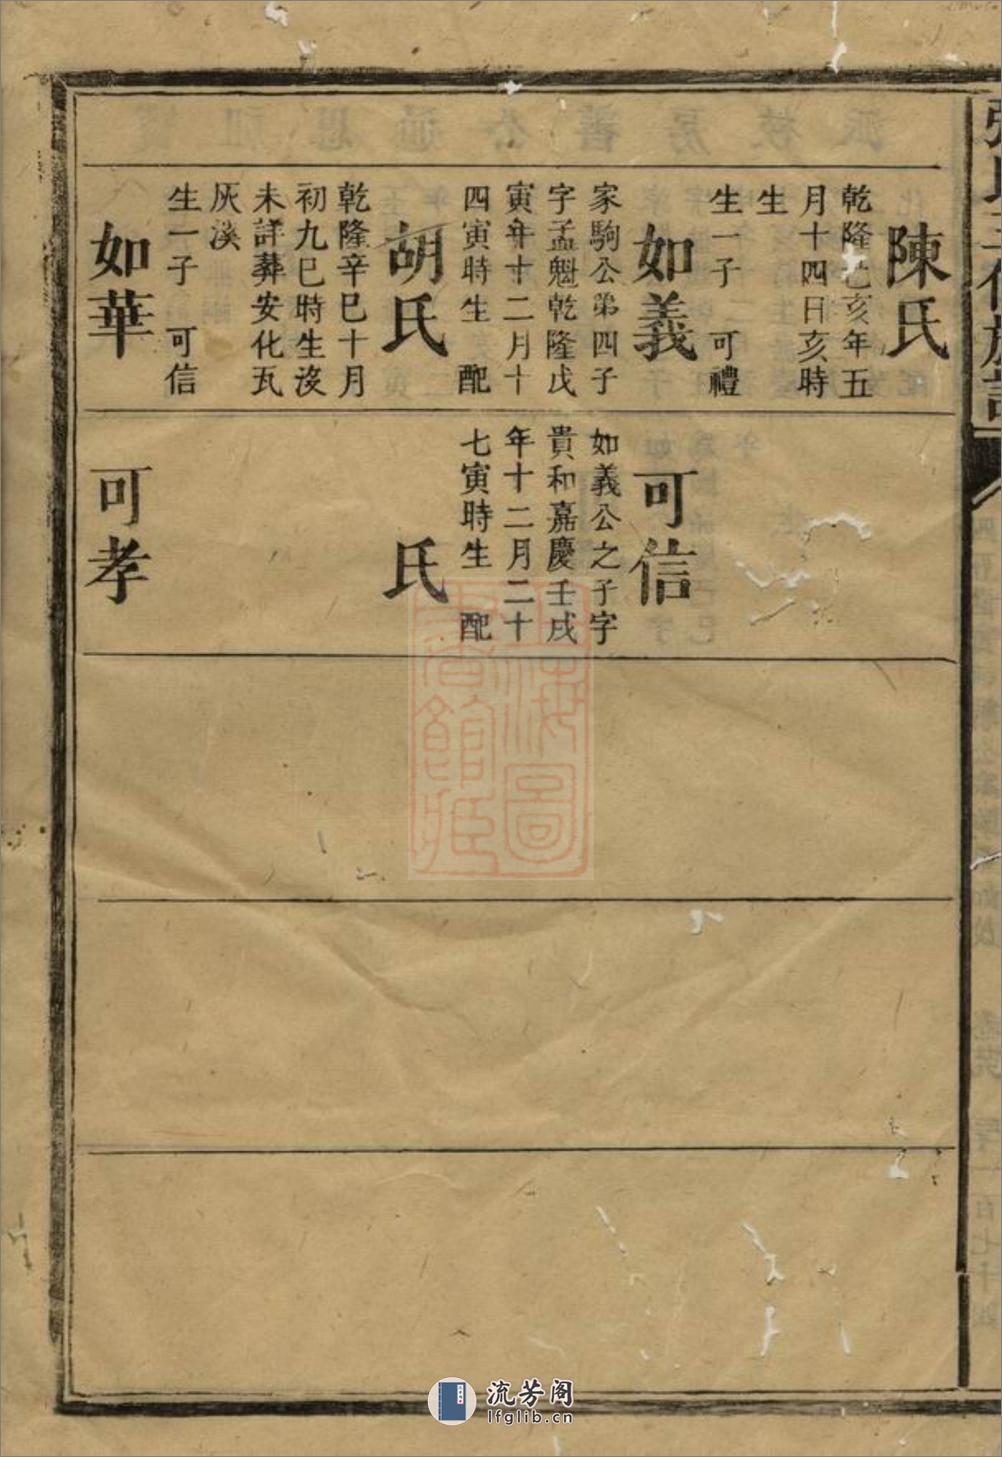 陳氏
乾隆己亥年五
月十四日亥時
生
生一子　可禮
如義
家駒公弟四子
字孟魁乾隆戊
寅年十二月十
四寅時生　配
胡氏
乾隆辛巳十月
初九巳時生沒
未詳葬安化瓦
灰溪
生一子　可信
如華
可信
如義公之子字
貴和嘉慶壬戌
年十二月二十
七寅時生　配
氏
可孝
上海圖
書館藏
流芳阁
lfglib.cn